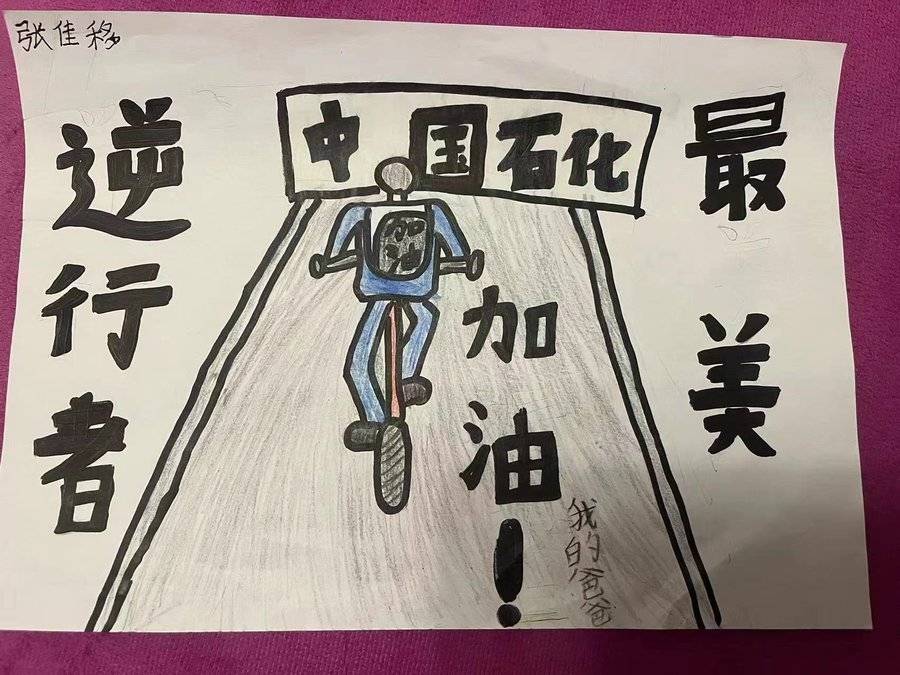 张佳移
中国石化
最美
逆行者
加油
加油！
我的爸爸